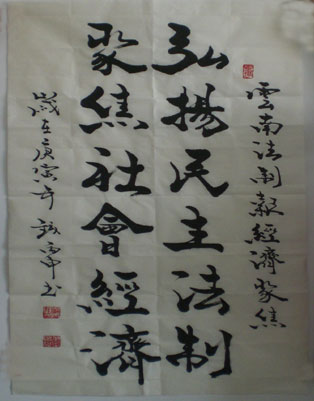 雲南法制報經濟聚焦
弘揚民主法制
聚焦社會經濟
歲在庚寅年
書